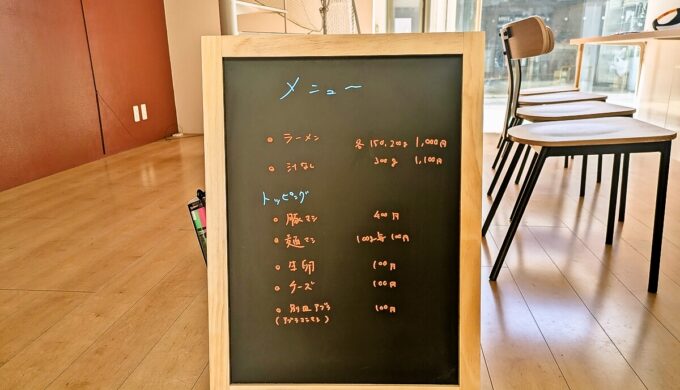 メニュー
○ ラーメン 各 150.200g 1,000円
○ 汁なし 300g 1,100円
トッピング
○ 豚マシ 400円
○ 麺マシ 100g毎 100円
○ 生卵 100円
○ チーズ 100円
○ 別皿アブラ 100円
(アブラコマミ)